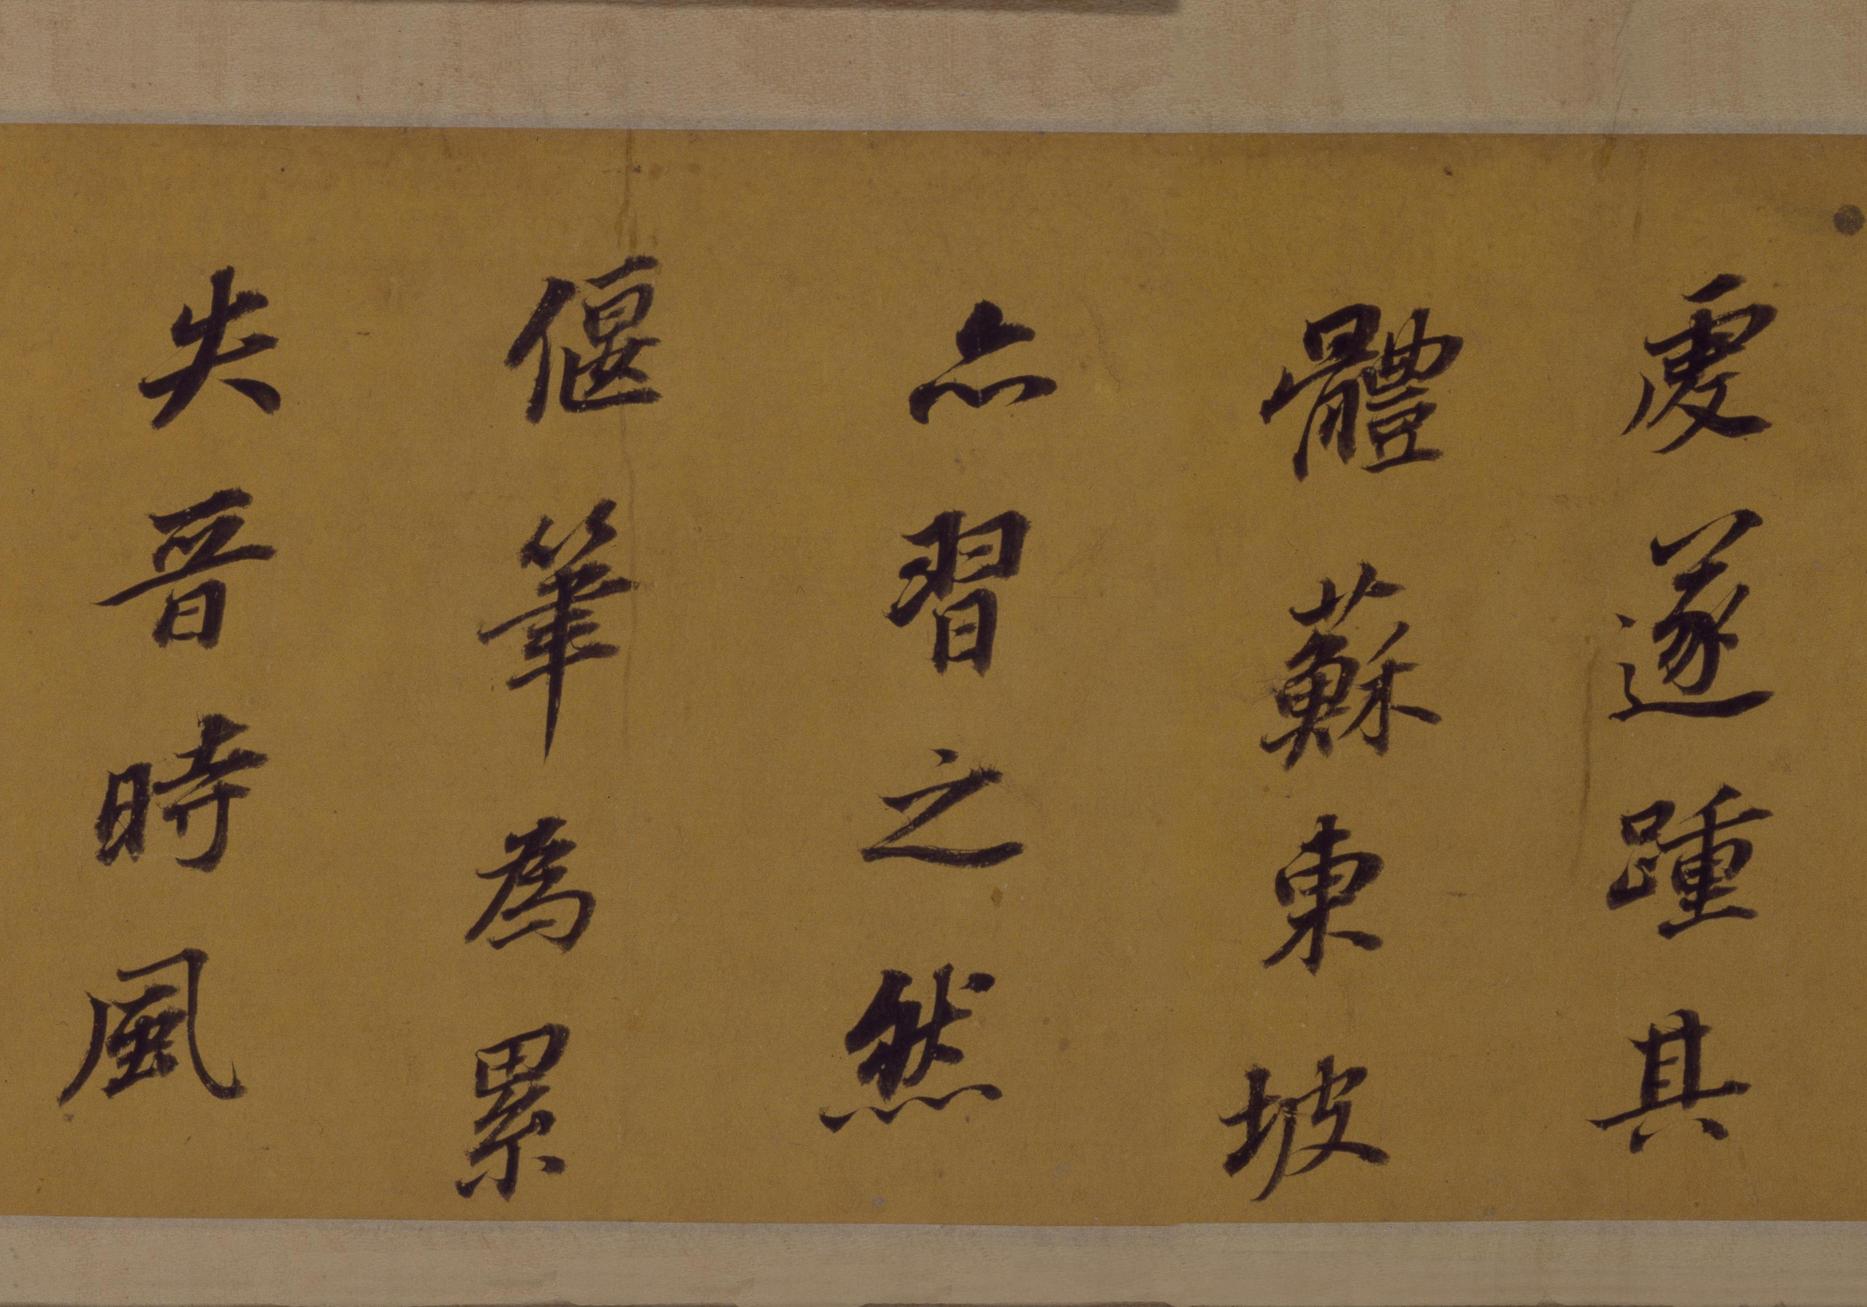 處遂踵其
體蘇東坡
亦習之然
偃筆為累
失晉時風